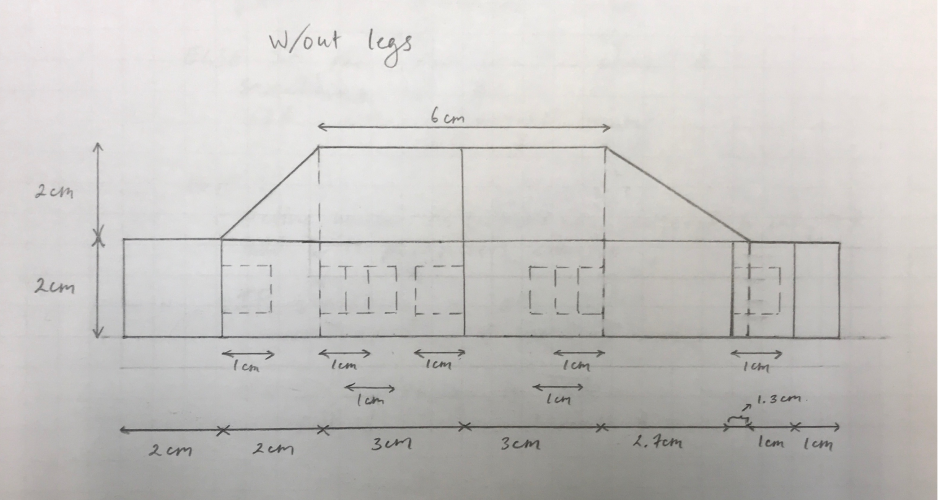 W/out legs
6cm
2cm
2cm
1cm 1cm 1cm 1cm 1cm
1cm 1cm
1.3cm
2cm 2cm 3cm 3cm 2.7cm 1cm 1cm